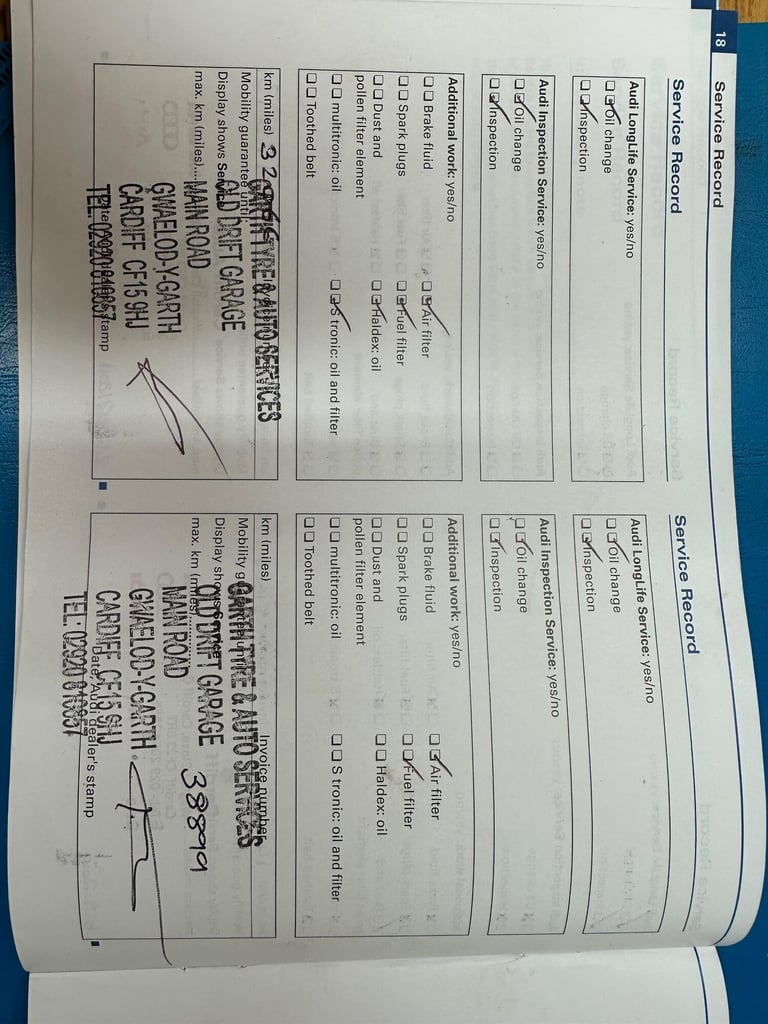 18
Service Record
Service Record
Audi LongLife Service: yes/no
Oil change
Inspection
Audi Inspection Service: yes/no
Oil change
Inspection
Additional work: yes/no
Brake fluid
Air filter
Spark plugs
Fuel filter
Dust and
pollen filter element
Haldex: oil
multitronic: oil
S tronic: oil and filter
Toothed belt
km (miles)
Mobility guarantee until
Display shows Service
max. km (miles)
GARTH TYRE & AUTO SERVICES
OLD DRIFT GARAGE
MAIN ROAD
GWAELOD-Y-GARTH
CARDIFF CF15 9HJ
TEL: 02920 810357
stamp
Service Record
Audi LongLife Service: yes/no
Oil change
Inspection
Audi Inspection Service: yes/no
Oil change
Inspection
Additional work: yes/no
Brake fluid
Air filter
Spark plugs
Fuel filter
Dust and
pollen filter element
Haldex: oil
multitronic: oil
S tronic: oil and filter
Toothed belt
km (miles)
Invoice number
Display shows Service
max. km (miles)
GARTH TYRE & AUTO SERVICES
OLD DRIFT GARAGE
38899
MAIN ROAD
GWAELOD-Y-GARTH
CARDIFF CF15 9HJ
TEL: 02920 810357
Date, Audi dealer's stamp